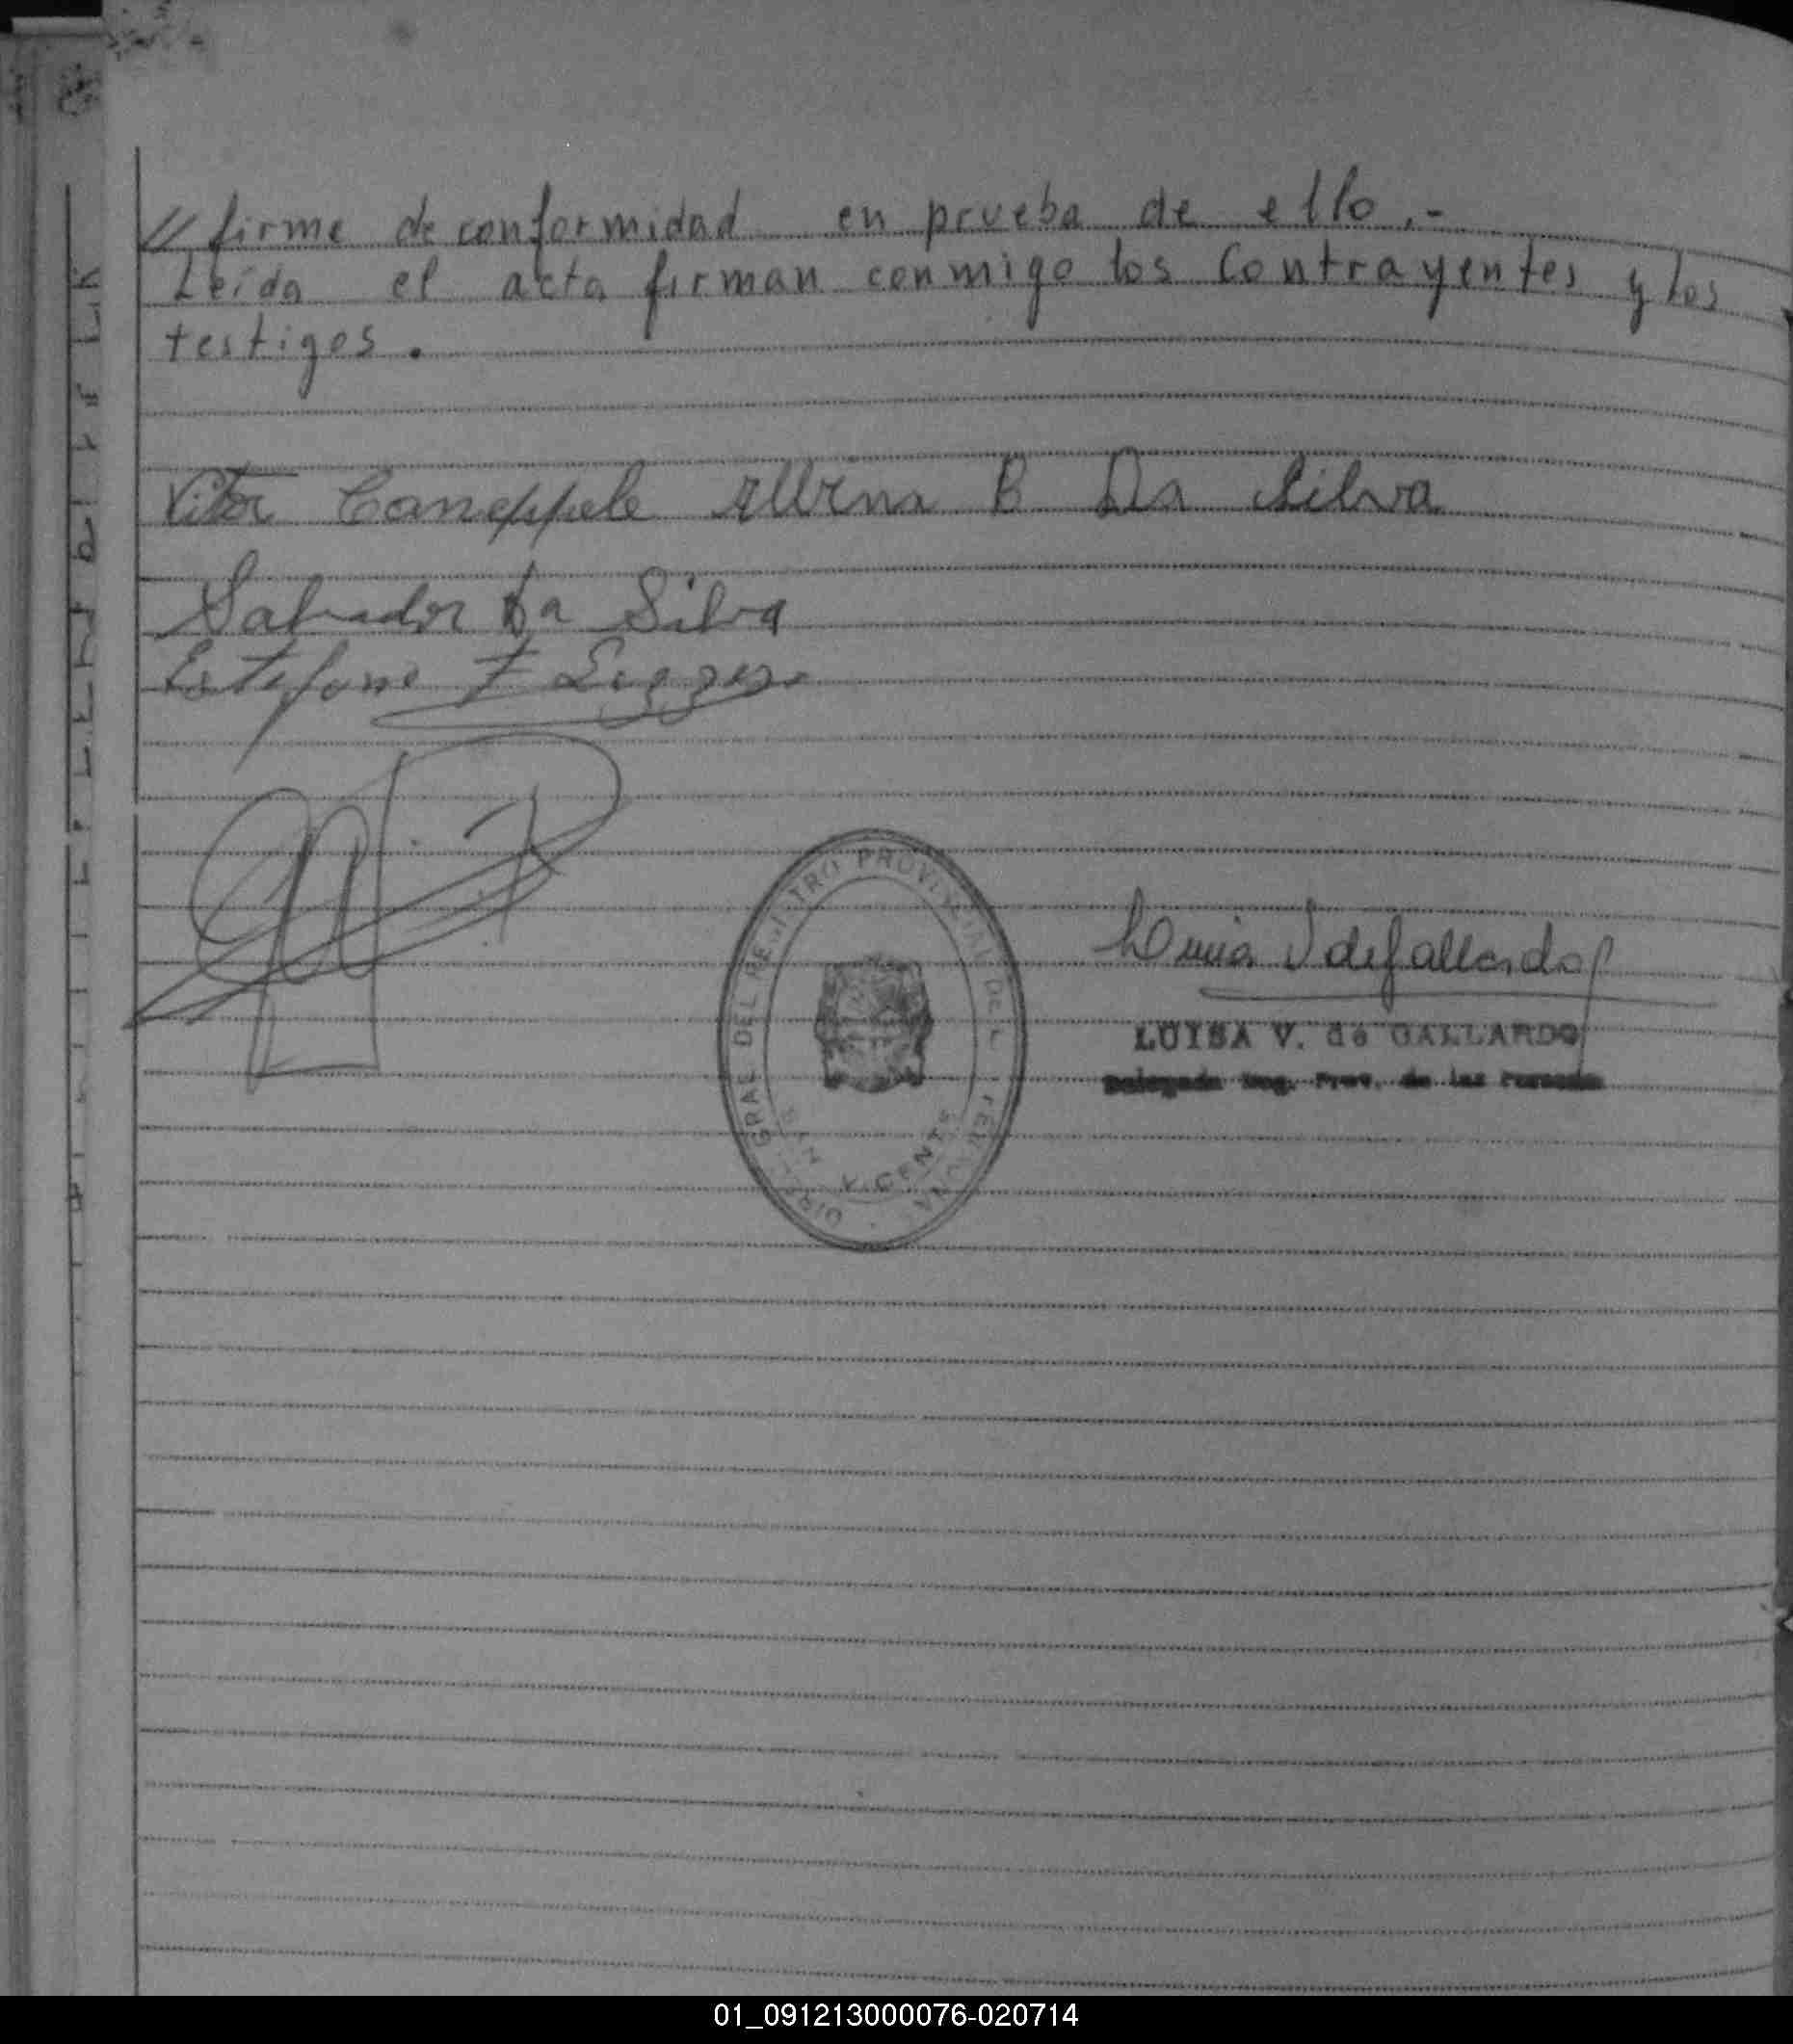 // firme de conformidad en prueba de ello.-
Leída el acta firman conmigo los Contrayentes y los
testigos.
Vitor Caneppele Albina B Da Silva
Salvador Da Silva
Estefano F
DEL REGISTRO PROVINCIAL DE L
VICENTE
LUISA V. de GALLARDO
Delegada Reg. Prov. de las Personas
01_091213000076-020714